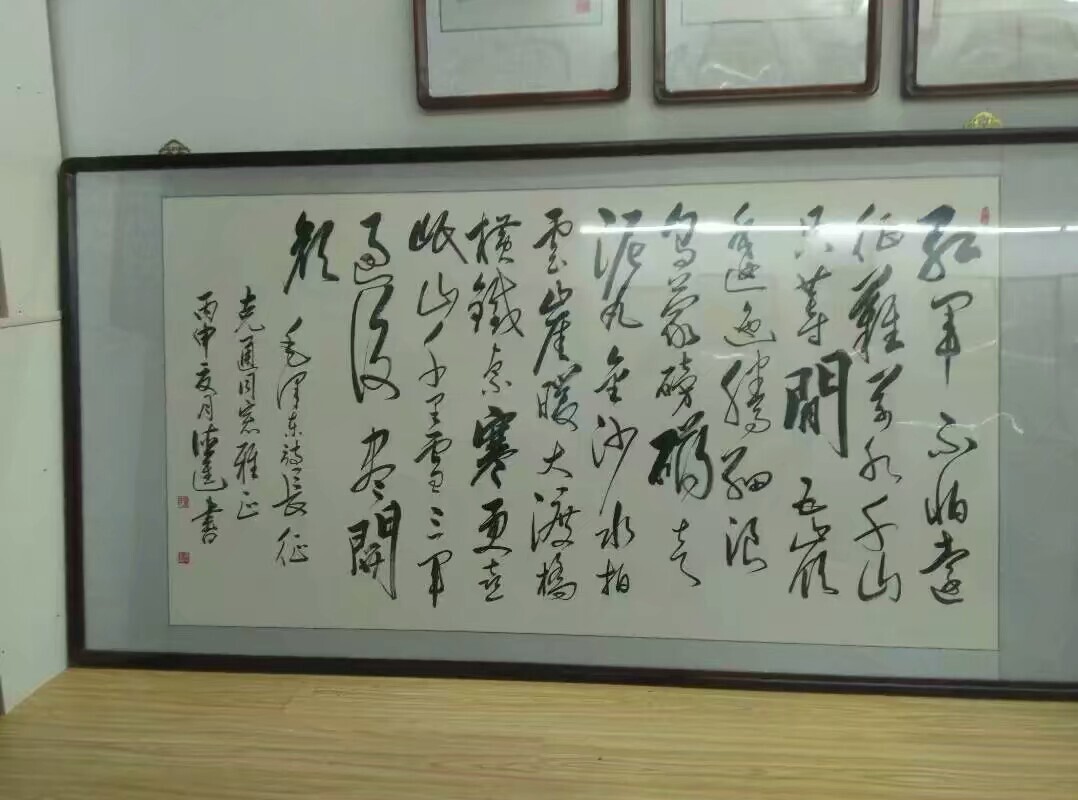 紅軍不怕遠
征難萬水千山
只等閒五嶺
逶迤騰細浪
烏蒙磅礴走
泥丸金沙水拍
雲崖暖大渡橋
橫鐵索寒更喜
岷山千里雪三軍
過後盡開
顏
毛澤東詩長征
克通同志雅正
丙申夏月德進書